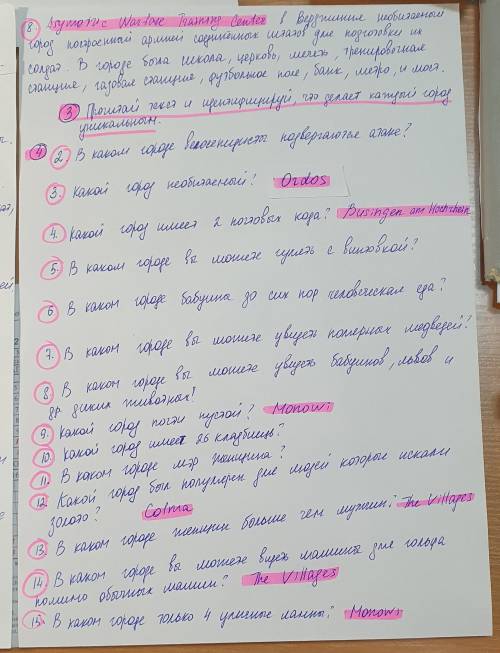 8) Asymatric Warfare Training Center в Вержинние необитаемый
город построенный армией соединённых штатов для подготовки их
солдат. В городе была школа, церковь, мечеть, тренировочная
станция, газовая станция, футбольное поле, банк, метро, и мост.
3) Прочитай текст и идентифицируй, что делает каждый город
уникальным.
4) 2) В каком городе велосепидисты подвергаются атаке?
3. Какой город необитаемый? Ordos
4. Какой город имеет 2 почтовых кода? Busingen am Hochrhein
5. В каком городе вы можете гулять с винтовкой?
6 В каком городе бабуина до сих пор человеческая еда?
7. В каком городе вы можете увидеть полярных медведей?
8. В каком городе вы можете увидеть бабуинов, львов и
др диких животных?
9. Какой город почти пустой? Monowi
10. Какой город имеет 26 кладбищ?
11. В каком городе мэр женщина?
12. Какой город был популярен для людей которые искали
золото? Colma
13. В каком городе женщин больше чем мужчин? The Villages
14. В каком городе вы можете видеть машины для гольфа
помимо обычных машин? The Villages
15. В каком городе только 4 уличные лампы? Monowi